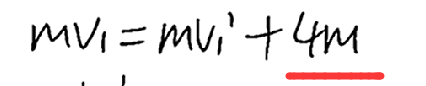 mv₁ = mv₁' + 4m